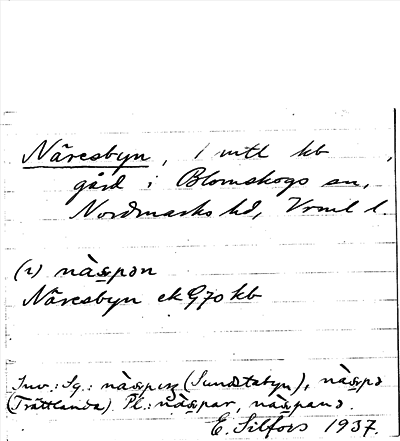 Näresbyn, 1 mtl kb,
gård i Blomskogs sn,
Nordmarks hd, Vrml l.
(1) nàspən
Näresbyn ek G70 kb
Inv.: Sg.: (Sundstabyn), nàspə
(Trättlanda). Pl.: nàspar, nàspanə.
E. Silfors 1937.